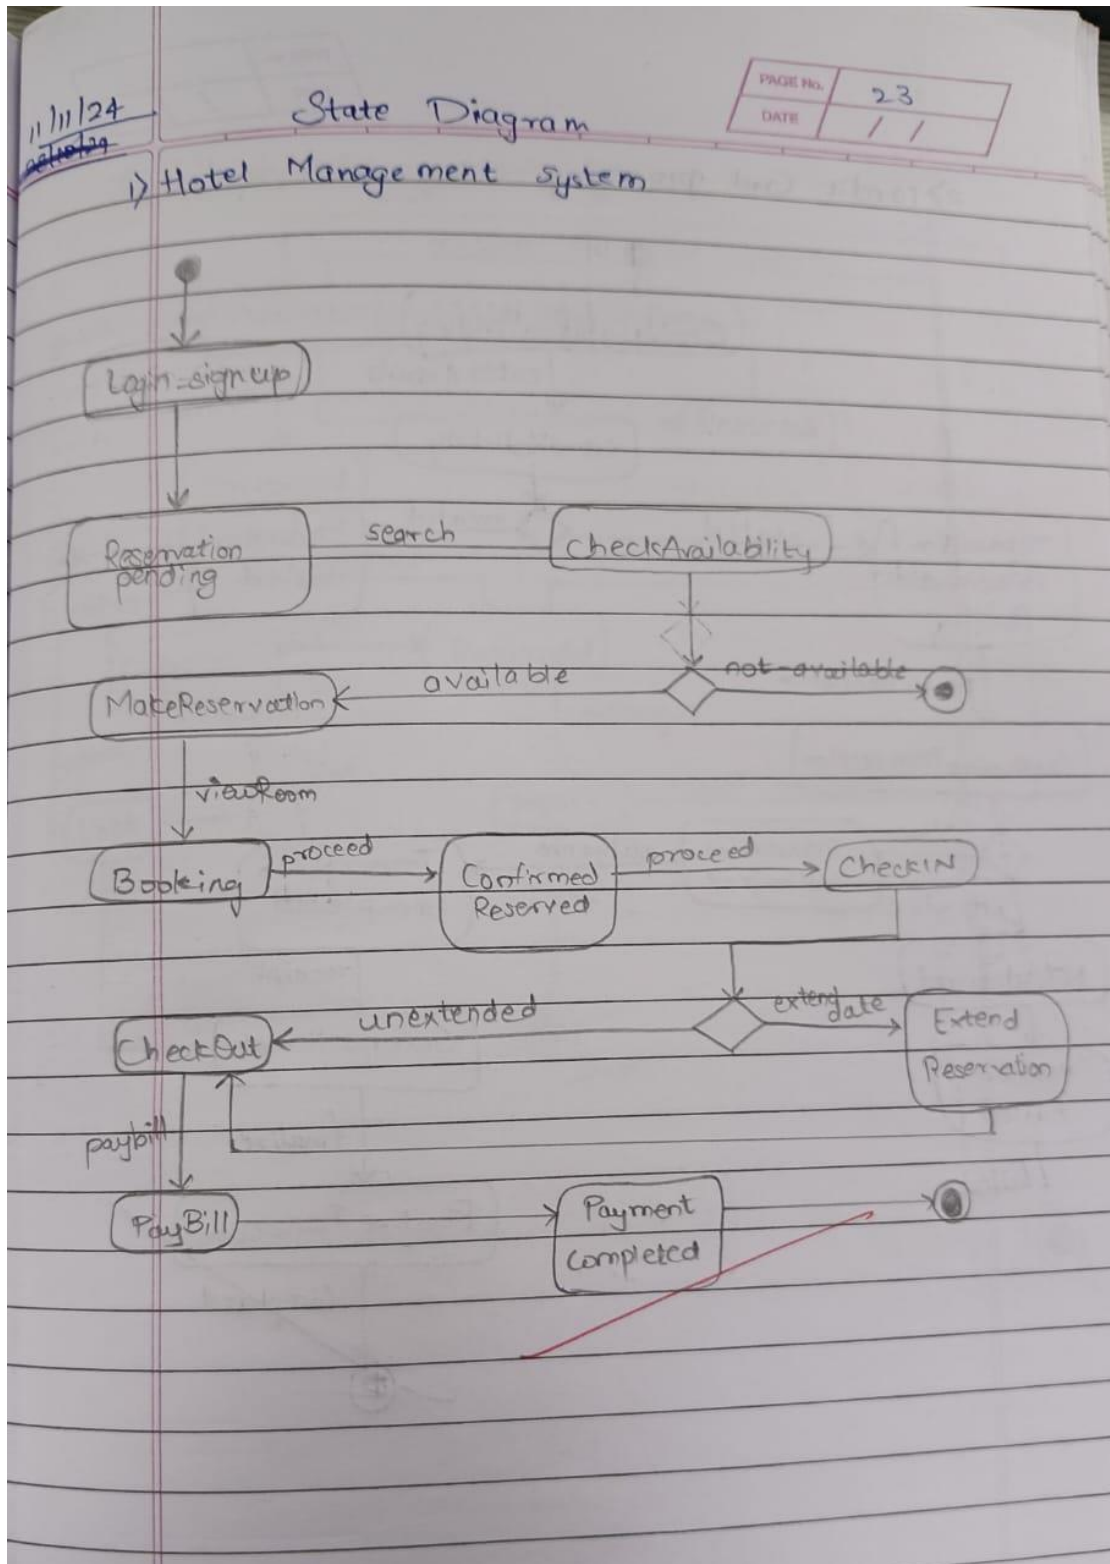 PAGE No. 23
DATE / /
11/11/24
State Diagram
1) Hotel Management system
Login-signup
Reservation
pending
search
checkAvailability
available
not-available
MakeReservation
viewRoom
Booking
proceed
Confirmed
Reserved
proceed
CheckIN
unextended
extend
date
Extend
Reservation
CheckOut
paybill
PayBill
Payment
completed